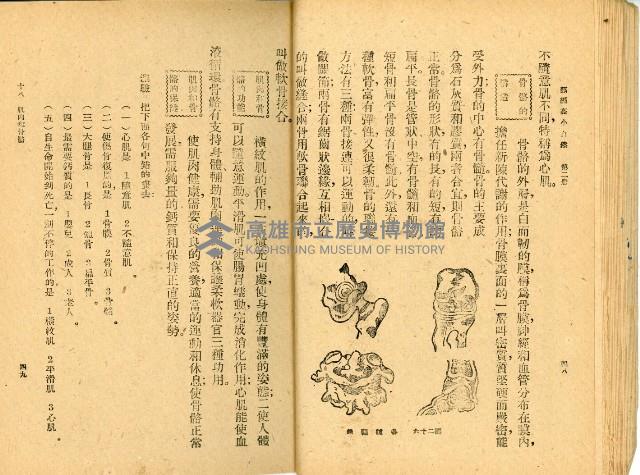 不隨意肌不同,特稱爲心肌。
骨骼的
構造
骨骼的外層是白而韌的膜,稱爲骨膜,神經和血管分布在膜內,
擔任新陳代謝的作用。骨膜裏面的一層叫密質,質堅硬而緻密,能
受外力。骨的中心有骨髓。骨的主要成
分爲石灰質和膠質,兩者合宜,則骨骼
正常。骨骼的形狀,有的長,有的短,有的
扁平。長骨是管狀,中空有骨髓和血
短骨和扁平骨沒有骨髓。此外還有
種軟骨,富有彈性又很柔韌。骨的聯
方法有三種:兩骨接連可以運動的
做關節;兩骨有鋸齒狀邊緣互相
的叫做縫合;兩骨用軟骨聯合起來
叫做軟骨接合。
圖二十六 各種關節
四八
肌肉和骨
骼的功能
橫紋肌的作用,一
填充凹處,使身體有豐滿的姿態;二使人體
可以隨意運動。平滑肌可使腸胃蠕動,完成消化作用;心肌能使血
液循環。骨骼有支持身體、輔助肌肉運動、保護柔軟器官三種功用。
肌肉和骨
骼的保護
使肌肉健康,需要優良的營養,適當的運動和休息;使骨骼正常
發展,需服夠量的鈣質和保持正直的姿勢。
測驗 把下面各句中錯的棄去:
(一)心肌是 1隨意肌 2不隨意肌。
(二)使骨骼復原的是 1骨膜 2骨質 3骨髓。
(三)大腿骨是 1長骨 2短骨 3扁平骨。
(四)最需要鈣質的是 1嬰兒 2成人 3老人。
(五)自生命開始到死亡一刻不停的工作的是 1橫紋肌 2平滑肌 3心肌。
十八 肌肉和骨骼
四九
高雄市立歷史博物館
KAOHSIUNG MUSEUM OF HISTORY